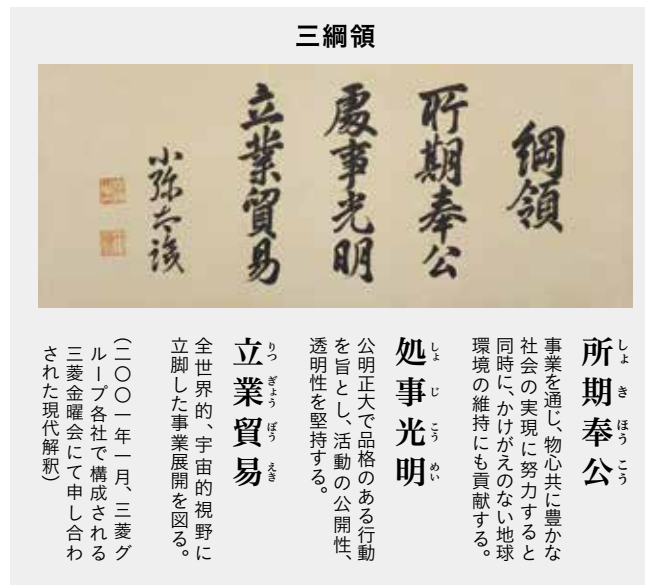 三綱領
綱領
所期奉公
處事光明
立業貿易
小弥太識
所期奉公
しょきほうこう
事業を通じ、物心共に豊かな
社会の実現に努力すると
同時に、かけがえのない地球
環境の維持にも貢献する。
処事光明
しょじこうめい
公明正大で品格のある行動
を旨とし、活動の公開性、
透明性を堅持する。
立業貿易
りつぎょうぼうえき
全世界的、宇宙的視野に
立脚した事業展開を図る。
（二〇〇一年一月、三菱グ
ループ各社で構成される
三菱金曜会にて申し合わ
された現代解釈）